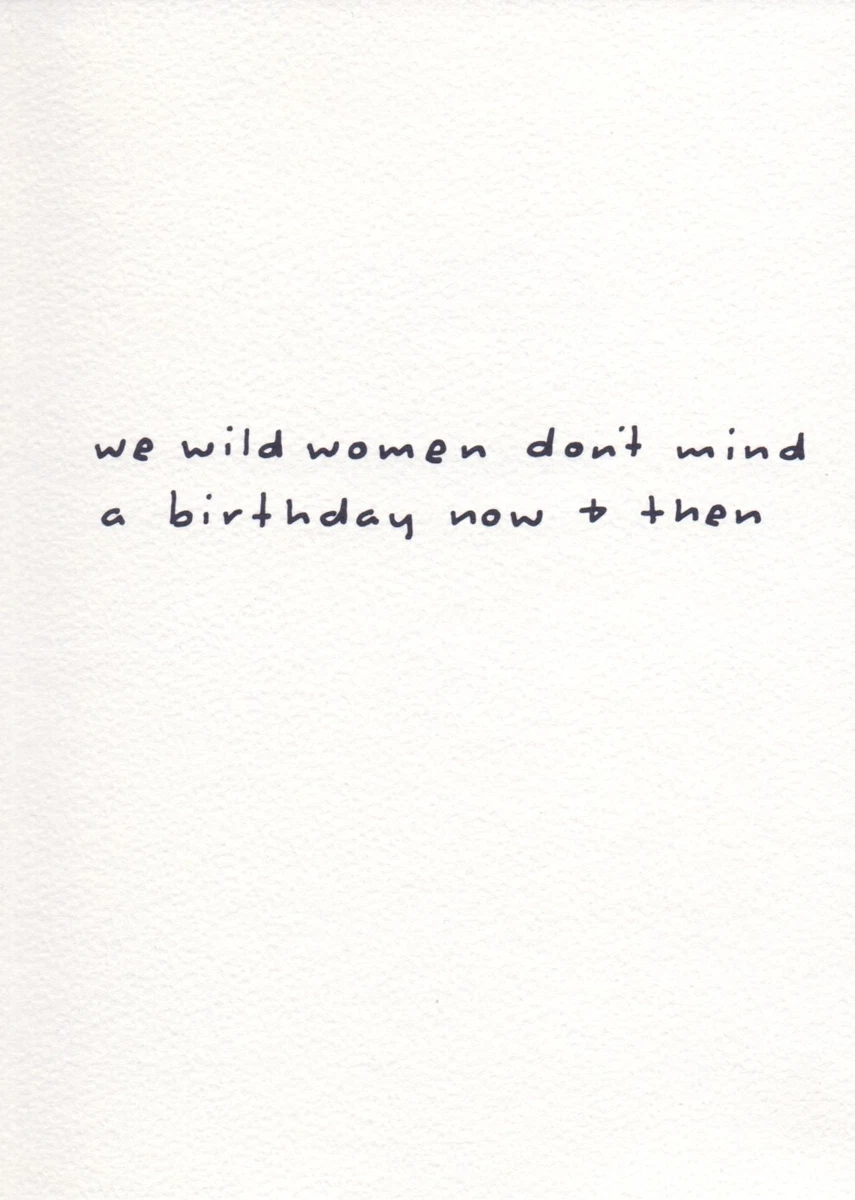 we wild women don't mind
a birthday now + then